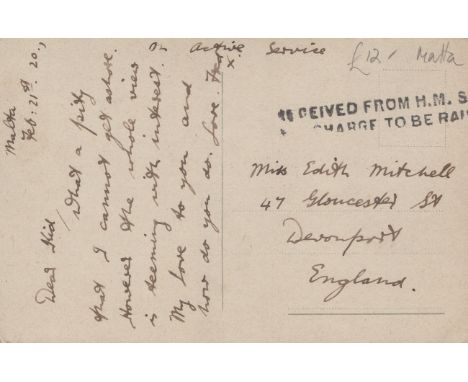 On Active Service
£12/- Malta
RECEIVED FROM H.M. S
CHARGE TO BE RAI
Miss Edith Mitchell
47 Gloucester St
Devonport
England.
Malta
Feb: 21st. 20.,
Dear Kid,
What a pity
that I cannot get ashore.
However the whole view
is teeming with interest.
My love to you and
how do you do. Love.
x.